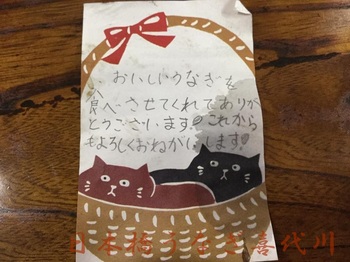 おいしいうなぎを
食べさせてくれてありが
とうございます。これから
もよろしくおねがいします
日本橋うなぎ喜代川